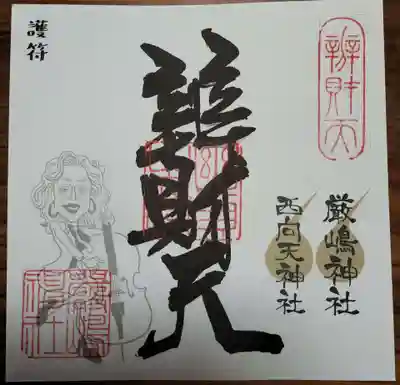 護符
辨財天
辨財天
厳嶋神社
西向天神社